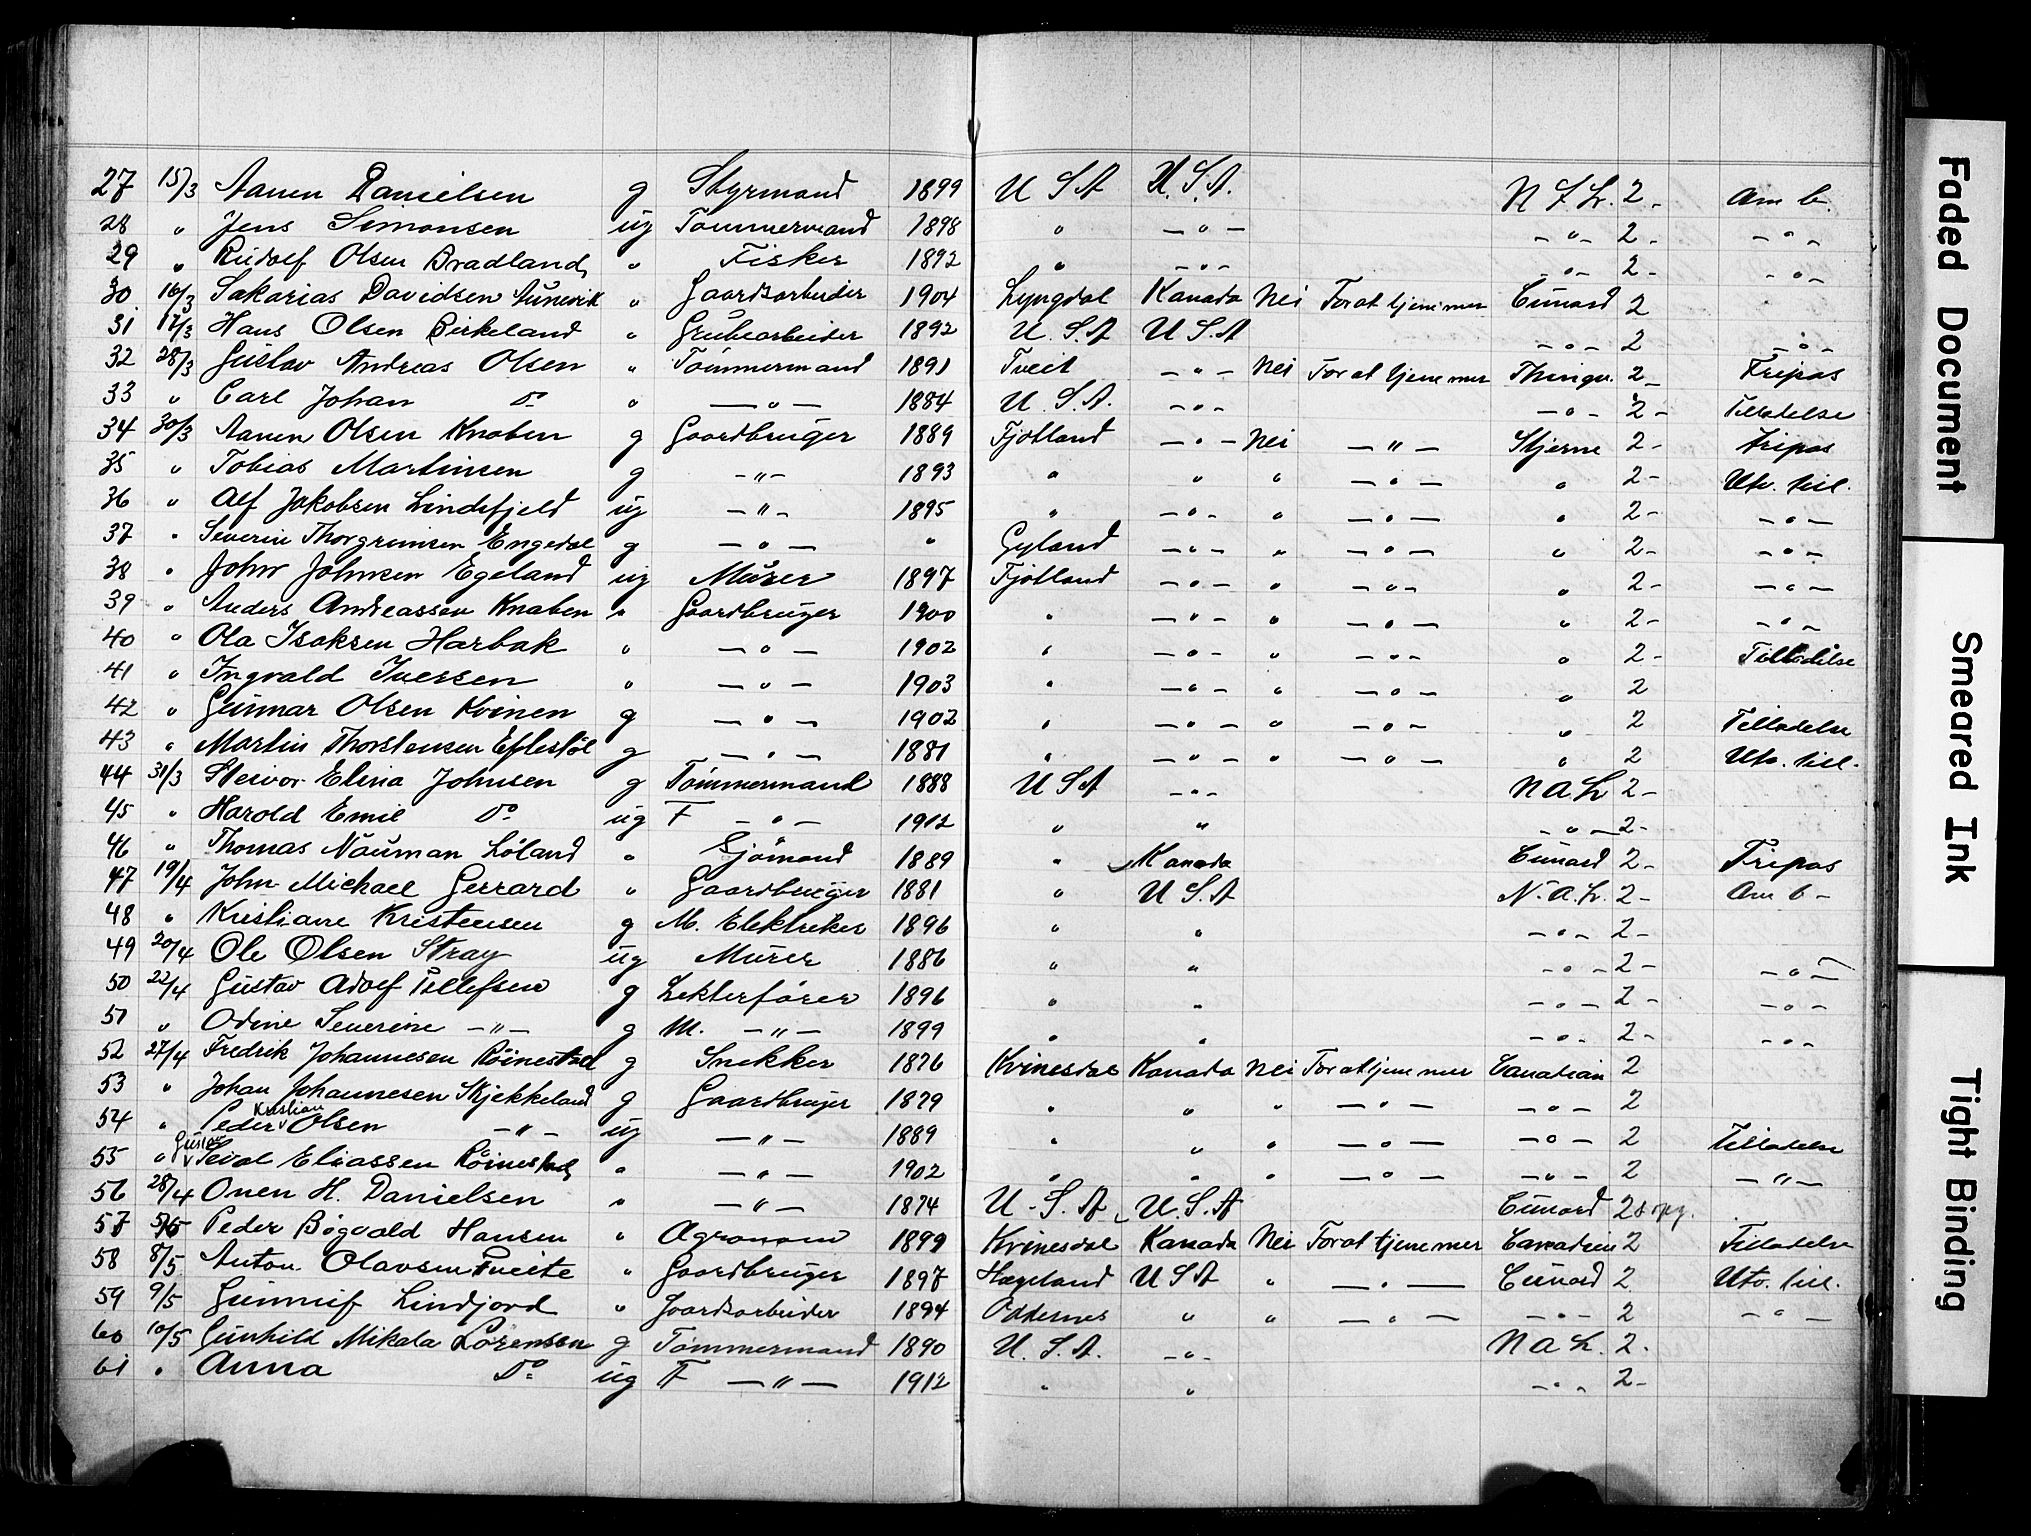 27 15/3 Aanen Danielsen g Styrmand 1899 U S A U.S.A. N A L. 2 - Am b.
28 " Jens Simonsen ug Tømmermand 1898 " — " — — " — 2 - — " —
29 " Rudolf Olsen Bradland " Fisker 1892 " — " — — " — 2 - — " —
30 16/3 Sakarias Davidsen " Gaardsarbeider 1904 Lyngdal Kanada Nei For at tjene mer Cunard 2
31 17/3 Hans Olsen Birkeland " Grubearbeider 1892 U.S.A U S A — " — 2 — " —
32 28/3 Gustav Andreas Olsen " Tømmermand 1891 Tveit — " — Nei For at tjene mer Thingv. 2 - Fripas
33 " Carl Johan Do " — " — 1884 U.S.A. — " — — " — 2 - Tilladelse
34 30/3 Aanen Olsen Knaben g Gaardbruger 1889 Fjotland — " — Nei — " — Stjerne 2 - Fripas
35 " Tobias Martinsen g — " — 1893 " " " — " — " 2 - Utv. till.
36 " Alf Jakobsen Lindefjeld ug — " — 1895 " — " — " — " — " 2 - — " —
37 " Severin Thorgrimsen Engedal g — " — " Gyland — " — " — " — " 2 - — " —
38 " John Johnsen Egeland ug Murer 1897 Fjotland — " — " — " — " 2 - — " —
39 " Anders Andreassen Knaben " Gaardbruger 1900 " — " — " — " — " 2 - — " —
40 " Ola Isaksen Harbak " — " — 1902 " — " — " — " — " 2 - Tilladelse
41 " Ingvald Iversen " — " — 1903 " — " — " — " — " 2
42 " Gunnar Olsen Kvinen g — " — 1902 " — " — " — " — " 2 Tilladelse
43 " Martin Thorstensen Eftestøl g — " — 1881 " — " — " — " — " 2 Utv. till.
44 31/3 Elina Johnsen g Tømmermand 1888 U S A — " — N A L 2 -
45 " Harold Emil Do ug F — " — 1912 " " — " — 2 -
46 " Thomas Nauman Løland " Sjømand 1889 " Kanada Cunard 2 - Fripas
47 19/4 John Michael Gerrard " Gaardbruger 1881 " U S A N.A.L. 2 - Am b -
48 " Kristiane Kristensen g M. Elektriker 1896 " " — " — 2 -
49 20/4 Ole Olsen Stray ug Murer 1886 " " — " — 2 - — " —
50 22/4 Gustav Adolf Tellefsen g Lekterfører 1896 " " — " — 2 - — " —
51 " Odine Severine — " — g M. — " — 1899 " " — " — 2 - — " —
52 27/4 Fredrik Johannesen Røinestad g Snekker 1876 Kvinesdal Kanada Nei For at tjene mer Canadian 2
53 " Johan Johannesen Skjekkeland g Gaardbruger 1879 " " " — " — — " — 2
54 " Peder Kristian Olsen — " — ug — " — 1889 " " " — " — — " — 2 Tilladelse
55 " Gustav Eliassen Røinestad " — " — 1902 " " " — " — — " — 2 — " —
56 28/4 Onen H. Danielsen " — " — 1874 U.S.A U.S.A Cunard 2
57 5/5 Peder Bogvald Hansen " Agronom 1899 Kvinesdal Kanada Nei For at tjene mer Canadian 2 Tilladelse
58 8/5 Anton Olavsen Tveite " Gaardbruger 1897 Hægeland U S A " — " — Cunard 2 Utv. till.
59 9/5 Gunnuf Lindjord " Gaardsarbeider 1894 Oddernes " " — " — — " — 2 — " —
60 10/5 Gunhild Mikala Lorenssen g Tømmermand 1890 U.S.A. — " — N A L. 2 -
61 " Anna Do ug F — " — 1912 " " — " — 2 -
Faded Document
Smeared Ink
Tight Binding